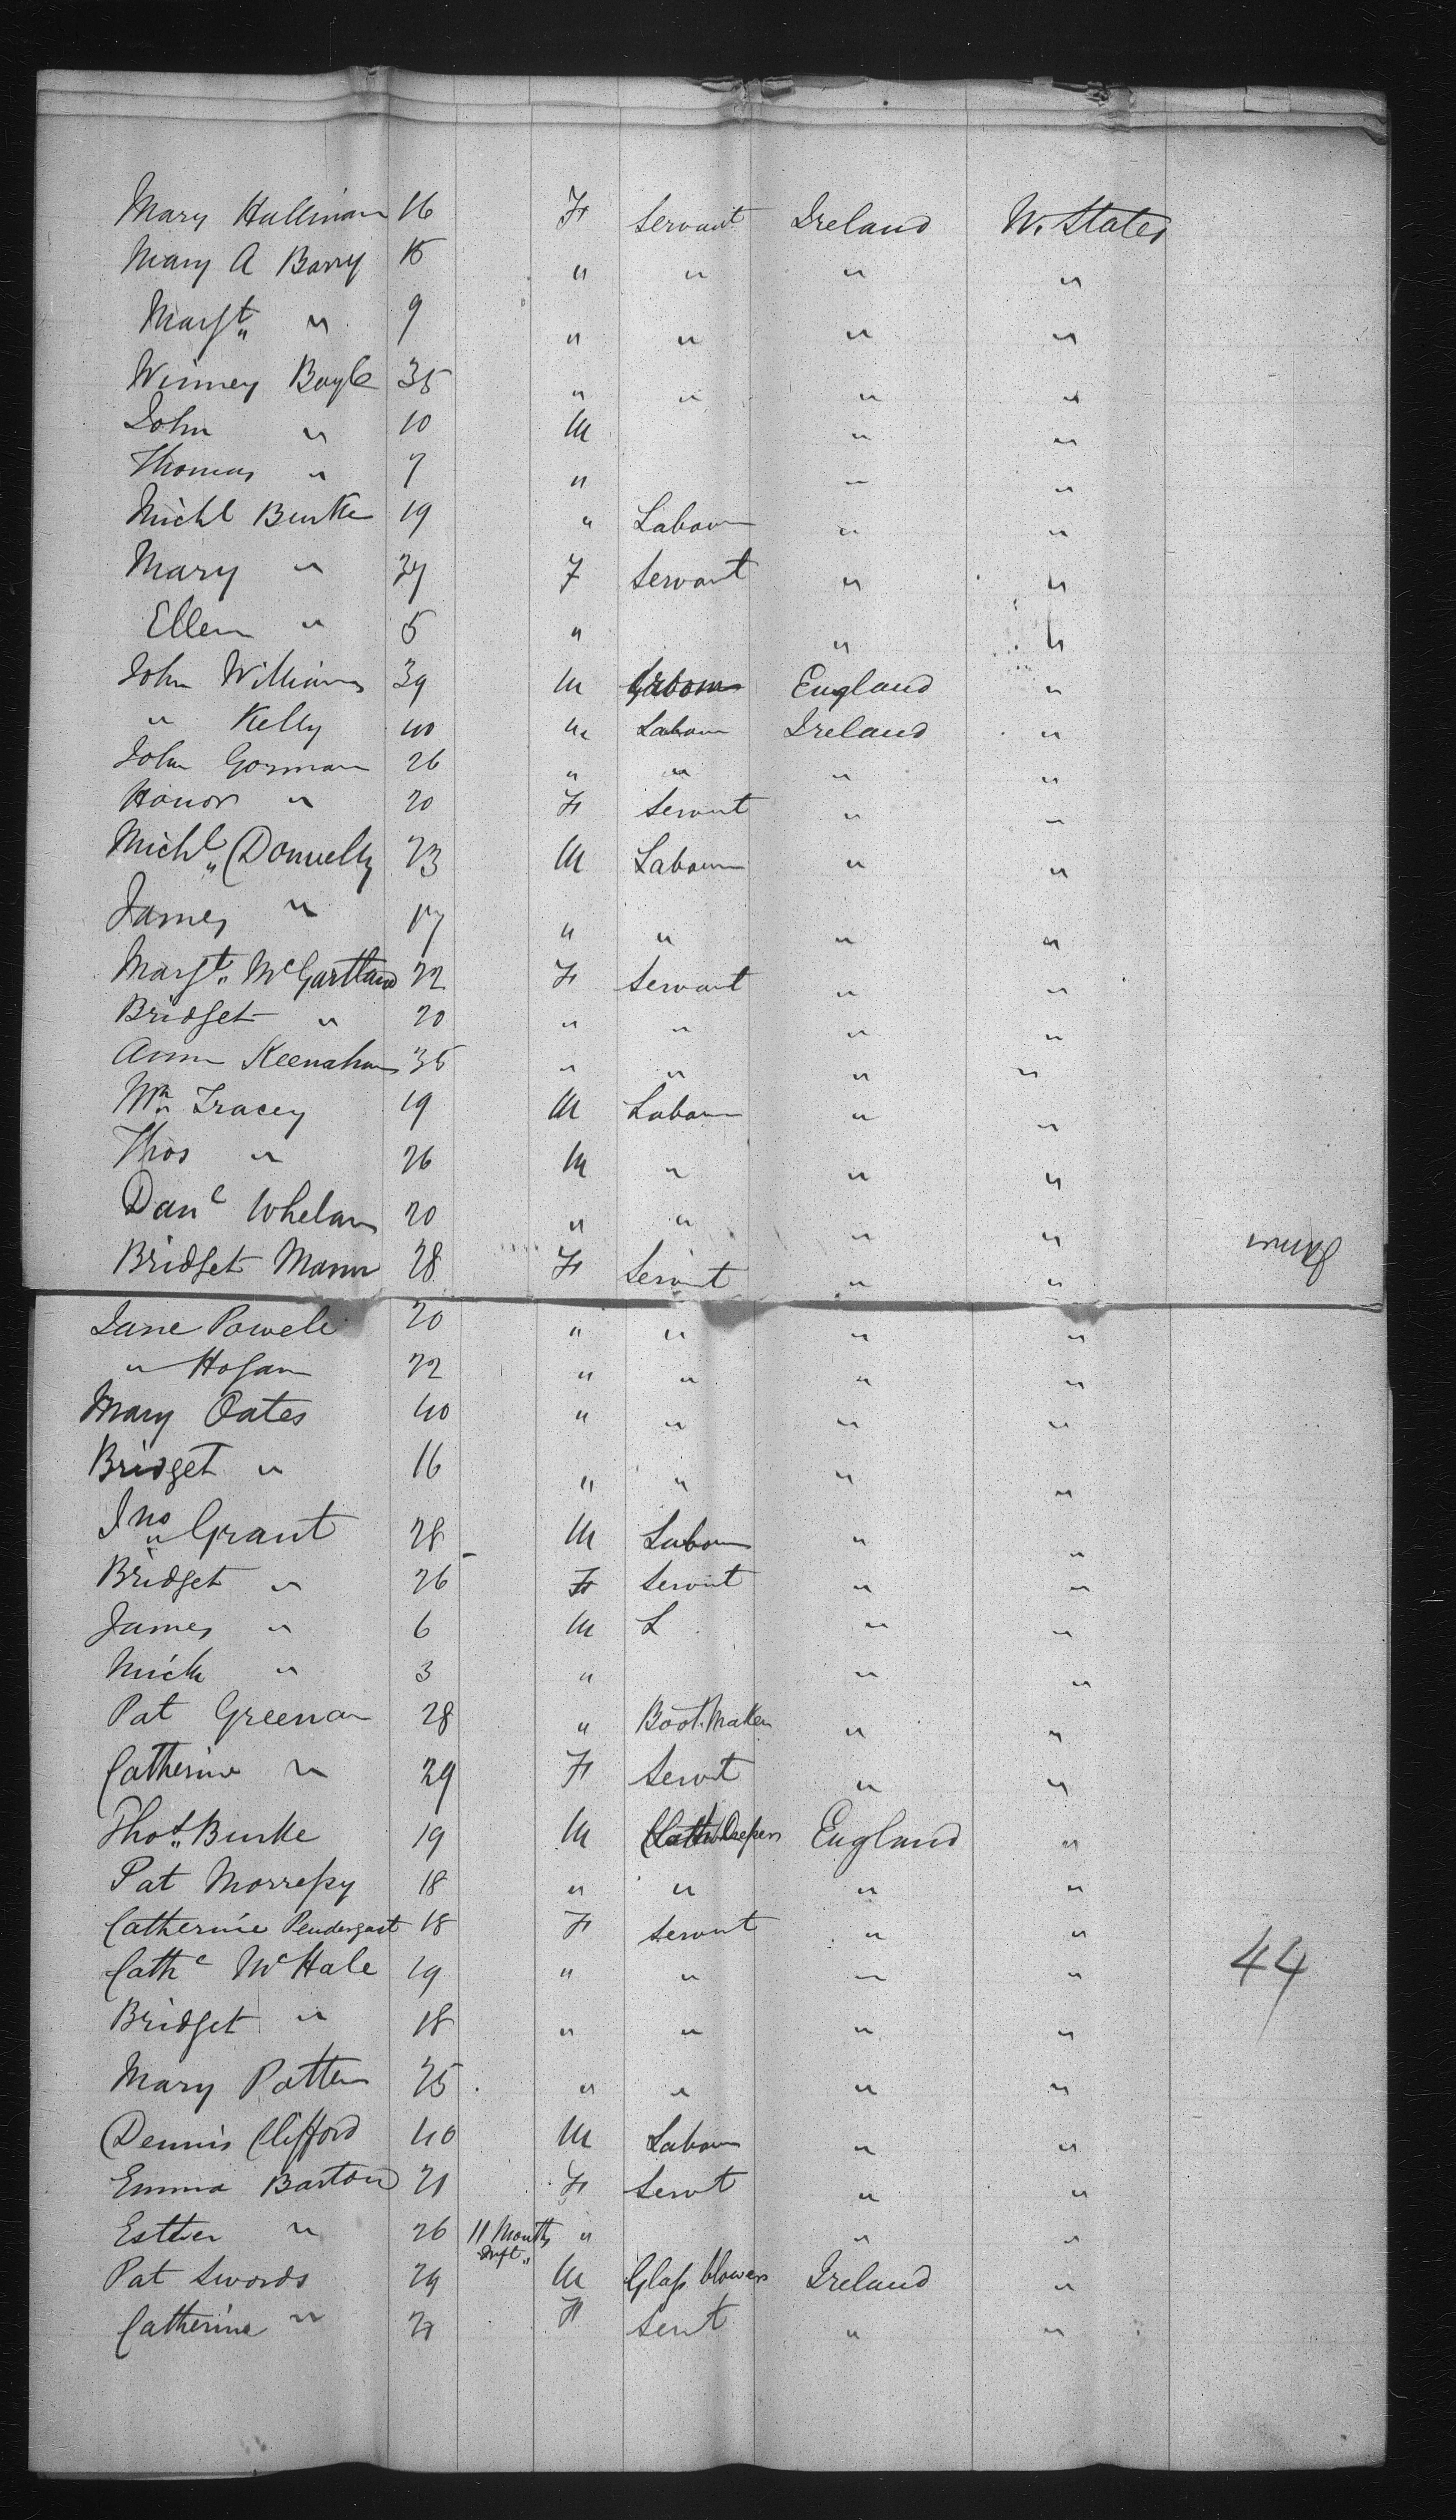 Mary Hallinan 16 F Servant Ireland U. States
Mary A Barry 15 " " " "
Margt " 9 " " " "
Winney Boyle 35 " " " "
John " 10 M " "
Thomas " 7 " " "
Michl Burke 19 " Labour " "
Mary " 37 F Servant " "
Ellen " 5 " " "
John Williams 39 M England "
" Kelly 40 " Labour Ireland "
John Gorman 26 " " " "
Honor " 20 F Servnt " "
Michl Donnelly 23 M Labour " "
James " 17 " " " "
Margt McGartland 22 F Servant " "
Bridget " 20 " " " "
Ann Keenahan 35 " " " "
Wm Tracey 19 M Labour " "
Thos " 26 M " " "
Danl Whelan 20 " " " "
Bridget Mann 28 F Servnt " "
Jane Powell 20 " " " "
" Hogan 22 " " " "
Mary Oates 40 " " " "
Bridget " 16 " " " "
Jno Grant 28 M Labour " "
Bridget " 26 F Servnt " "
James " 6 M L " "
Mich " 3 " " "
Pat Greenan 28 " Boot Maker " "
Catherine " 29 F Servt " "
Thos Burke 19 M Cloth Dresser England "
Pat Morressy 18 " " " "
Catherine Pendergast 18 F Servnt " "
Cathe McHale 19 " " " "
44
Bridget " 18 " " " "
Mary Patten 25 " " " "
Dennis Clifford 40 M Labour " "
Emma Barton 21 F Servt " "
Esther " 26 11 Months Inft " " "
Pat Swords 29 M Glass blower Ireland "
Catherine " 21 F Servt " "